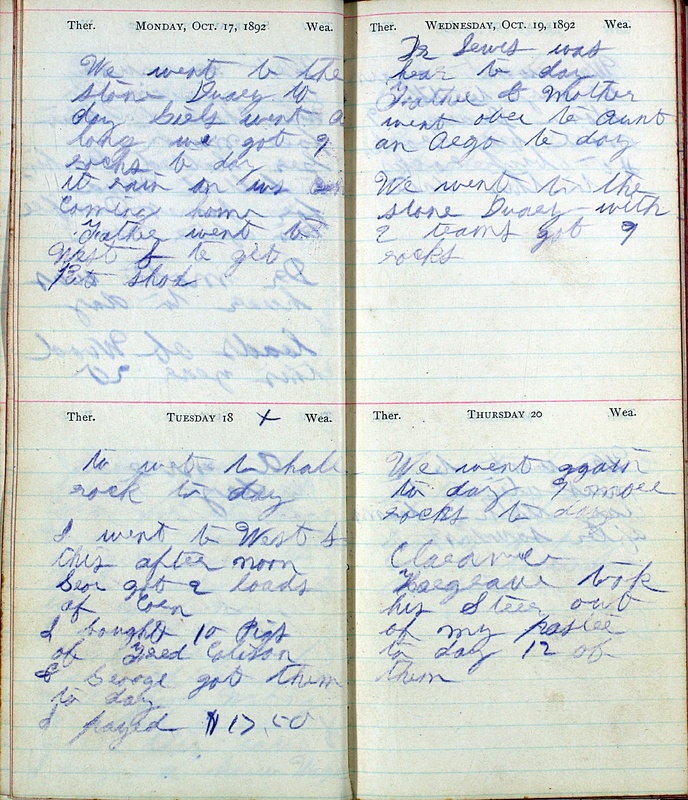 Ther. MONDAY, OCT. 17, 1892 Wea.
We went to the
stone to
day went a
long we got 9
rocks to day
it rain on us
Coming home
Father went to
West & to get
Pet shod
Ther. TUESDAY 18 X Wea.
to wet to hall
rock to day
I went to West &
this after noon
got 2 loads
of
I bought 10 Pigs
of Fred
& George got them
to day
I payed $17.50
Ther. WEDNESDAY, OCT. 19, 1892 Wea.
Dr Lewis was
hear to day
Father & Mother
went over to Aunt
an to day
We went to the
stone with
2 teams got 9
rocks
Ther. THURSDAY 20 Wea.
We went again
to day 9 more
rocks to day
Clarance
Hargrave took
his Steer out
of my
to day 12 of
them